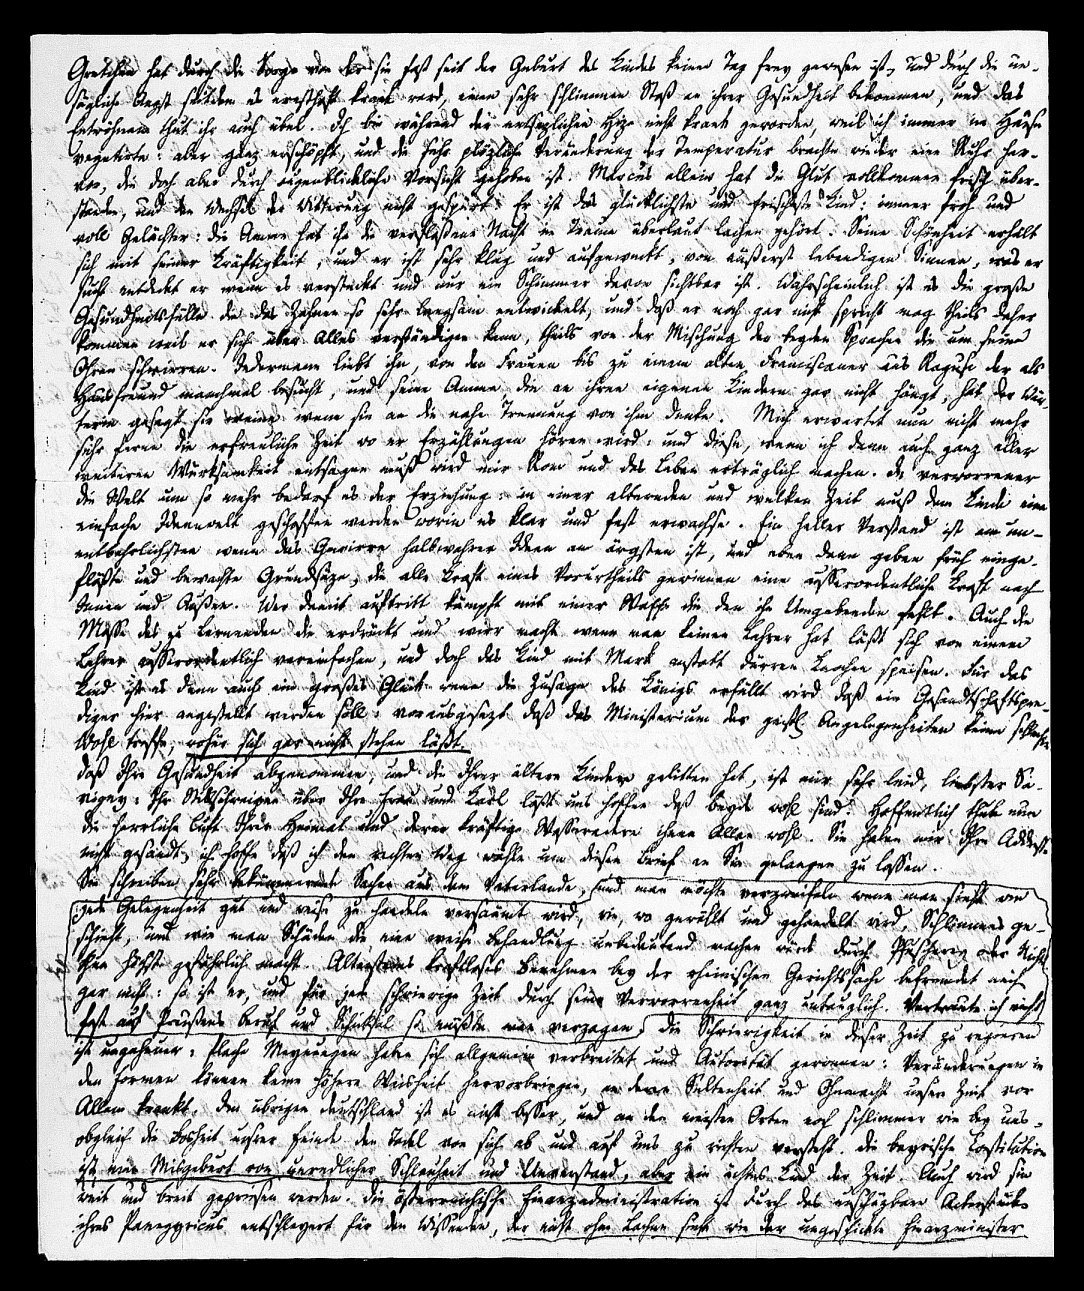 Gretchen hat durch die Sorge von der sie fast seit der Geburt des Kindes keinen Tag frey gewesen ist, und durch die un-
sägliche Angst seitdem es ernsthaft krank ward, einen sehr schlimmen Stoß an ihrer Gesundheit bekommen, und das
Entwöhnen thut ihr auch übel. Ich bin während der entsezlichen Hize nicht krank geworden, weil ich immer im Hause
vegetirte: aber ganz erschöpft, und die sehr plözliche Veränderung der Temperatur brachte wieder eine Ruhr her-
vor, die doch aber durch augenblickliche Vorsicht gehoben ist. Marcus allein hat die Glut vollkommen frisch über-
standen, und den Wechsel der Witterung nicht gespürt. Er ist das glücklichste und frischeste Kind: immer froh und
voll Gelächter: die Amme hat ihn die verflossene Nacht im Traume überlaut lachen gehört. Seine Schönheit erhält
sich mit seiner Kräftigkeit, und er ist sehr klug und aufgeweckt, von äußerst lebendigen Sinnen, was er
sucht entdeckt er wenn es versteckt und nur ein Schimmer davon sichtbar ist. Wahrscheinlich ist es die große
Gesundheitsfülle die das Zahnen so sehr langsam entwickelt, und daß er noch gar nicht spricht mag theils daher
kommen weil er sich über Alles verständigen kann, theils von der Mischung der beyden Sprachen die um seine
Ohren schwirren. Jedermann liebt ihn, von den Frauen bis zu einem alten Franciscaner aus Ragusa der als
Hausfreund manchmal besucht, und seine Amme, die an ihren eigenen Kindern gar nicht hängt, hat der Wär-
terin gesagt sie weine wenn sie an die nahe Trennung von ihm denke. Mich erwartet nun nicht mehr
sehr ferne die erfreuliche Zeit wo er Erzählungen hören wird: und diese, wenn ich denn auch ganz aller
weiteren Würksamkeit entsagen muß wird mir Rom und das Leben erträglich machen. Je verworrener
die Welt um so mehr bedarf es der Erziehung: in einer alternden und welken Zeit muß dem Kinde eine
einfache Ideenwelt geschaffen werden worin es klar und fest erwachse. Ein heller Verstand ist am un-
entbehrlichsten wenn das Gewirre halbwahrer Ideen am ärgsten ist, und eben dann geben früh einge-
flößte und bewachte Grundsäze, die alle Kraft eines Vorurtheils gewinnen eine ausserordentliche Kraft nach
Innen und Außen. Wer damit auftritt kämpft mit einer Waffe die den ihn Umgebenden fehlt. Auch die
Masse des zu Lernenden die erdrückt und wirr macht wenn man keinen Lehrer hat läßt sich von einem
Lehrer ausserordentlich vereinfachen, und doch das Kind mit Mark anstatt dürren Knochen speisen. Für das
Kind ist es denn auch ein großes Glück wenn die Zusage des Königs erfüllt wird daß ein Gesandtschaftspre-
diger hier angestellt werden soll: vorausgesezt daß das Ministerium der geistl Angelegenheiten keine schlechte
Wahl treffe, wofür sich gar nicht stehen läßt.
Daß Ihre Gesundheit abgenommen, und die Ihrer ältern Kinder gelitten hat, ist mir sehr leid, liebster Sa-
vigny: Ihr Stillschweigen über Ihre Frau und Karl läßt uns hoffen daß beyde wohl sind? Hoffentlich thut nun
die herrliche Luft Ihrer Heimat und deren kräftige Wasser ihnen Allen wohl. Sie haben mir Ihre Addresse
nicht gesandt, ich hoffe daß ich den rechten Weg wähle um diesen Brief an Sie gelangen zu lassen.
Sie schreiben sehr bekümmernde Sachen aus dem Vaterlande, und man möchte verzweifeln wenn man sieht wie
jede Gelegenheit gut und weise zu handeln versäumt wird, wie, wo gewählt und gehandelt wird, Schlimmes ge-
schieht, und wie man Schäden die eine weise Behandlung unbedeutend machen würde durch Pfuscherey oder Nichts-
thun höchst gefährlich macht. Altensteins kraftloses Benehmen bey der rheinischen Gerichtssache befremdet mich
gar nicht: so ist er, und für jede schwierige Zeit durch seine Verworrenheit ganz untauglich. Vertraute ich nicht
fest auf Preußens Beruf und Schicksal so müßte man verzagen; die Schwierigkeit in dieser Zeit zu regieren
ist ungeheuer: flache Meynungen haben sich allgemein verbreitet und Autorität gewonnen: Veränderungen in
den Formen können keine höhere Weisheit hervorbringen, an deren Seltenheit und Ohnmacht unsre Zeit vor
Allem krankt. Im übrigen Deutschland ist es nicht besser, und an den meisten Orten noch schlimmer wie bey uns,
obgleich die Bosheit unsrer Feinde den Tadel von sich ab und auf uns zu richten versteht. Die bayrische Constitution
ist eine Misgeburt von unredlicher Schlauheit und Unverstand, aber ein ächtes Kind der Zeit. Auch wird sie
weit und breit gepriesen werden. Die österreichische Finanzadministration ist durch das unschäzbare Actenstück
ihres Panegyricus entschleyert für den Wissenden, der nicht ohne Lachen sieht wie der ungeschickte Finanzminister